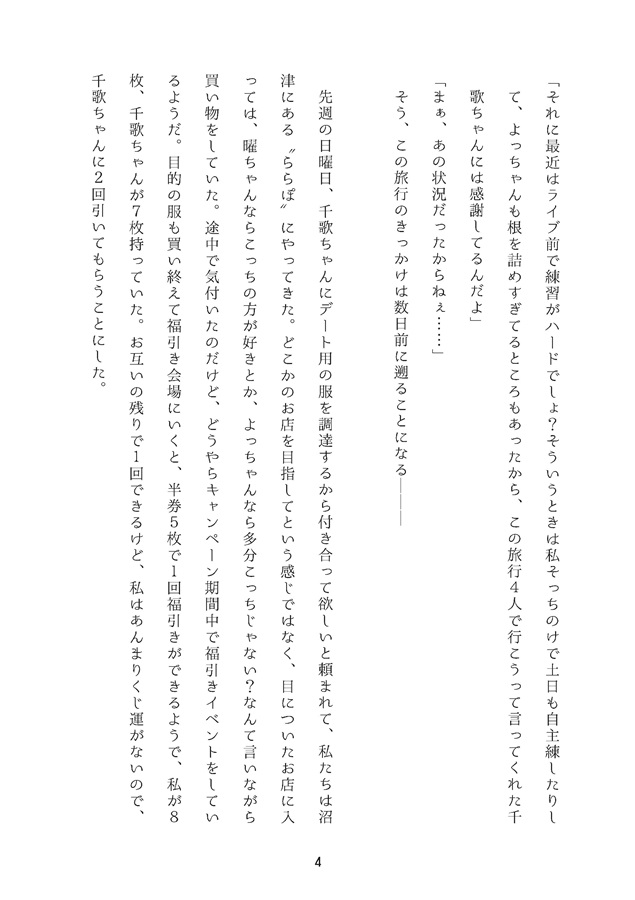 「それに最近はライブ前で練習がハードでしょ？そういうときは私そっちのけで土日も自主練したりし
て、よっちゃんも根を詰めすぎてるところもあったから、この旅行４人で行こうって言ってくれた千
歌ちゃんには感謝してるんだよ」
「まぁ、あの状況だったからねぇ……」
そう、この旅行のきっかけは数日前に遡ることになる―――
先週の日曜日、千歌ちゃんにデート用の服を調達するから付き合って欲しいと頼まれて、私たちは沼
津にある〝ららぽ〟にやってきた。どこかのお店を目指してという感じではなく、目についたお店に入
っては、曜ちゃんならこっちの方が好きとか、よっちゃんなら多分こっちじゃない？なんて言いながら
買い物をしていた。途中で気付いたのだけど、どうやらキャンペーン期間中で福引きイベントをしてい
るようだ。目的の服も買い終えて福引き会場にいくと、半券５枚で１回福引きができるようで、私が８
枚、千歌ちゃんが７枚持っていた。お互いの残りで１回できるけど、私はあんまりくじ運がないので、
千歌ちゃんに２回引いてもらうことにした。
4